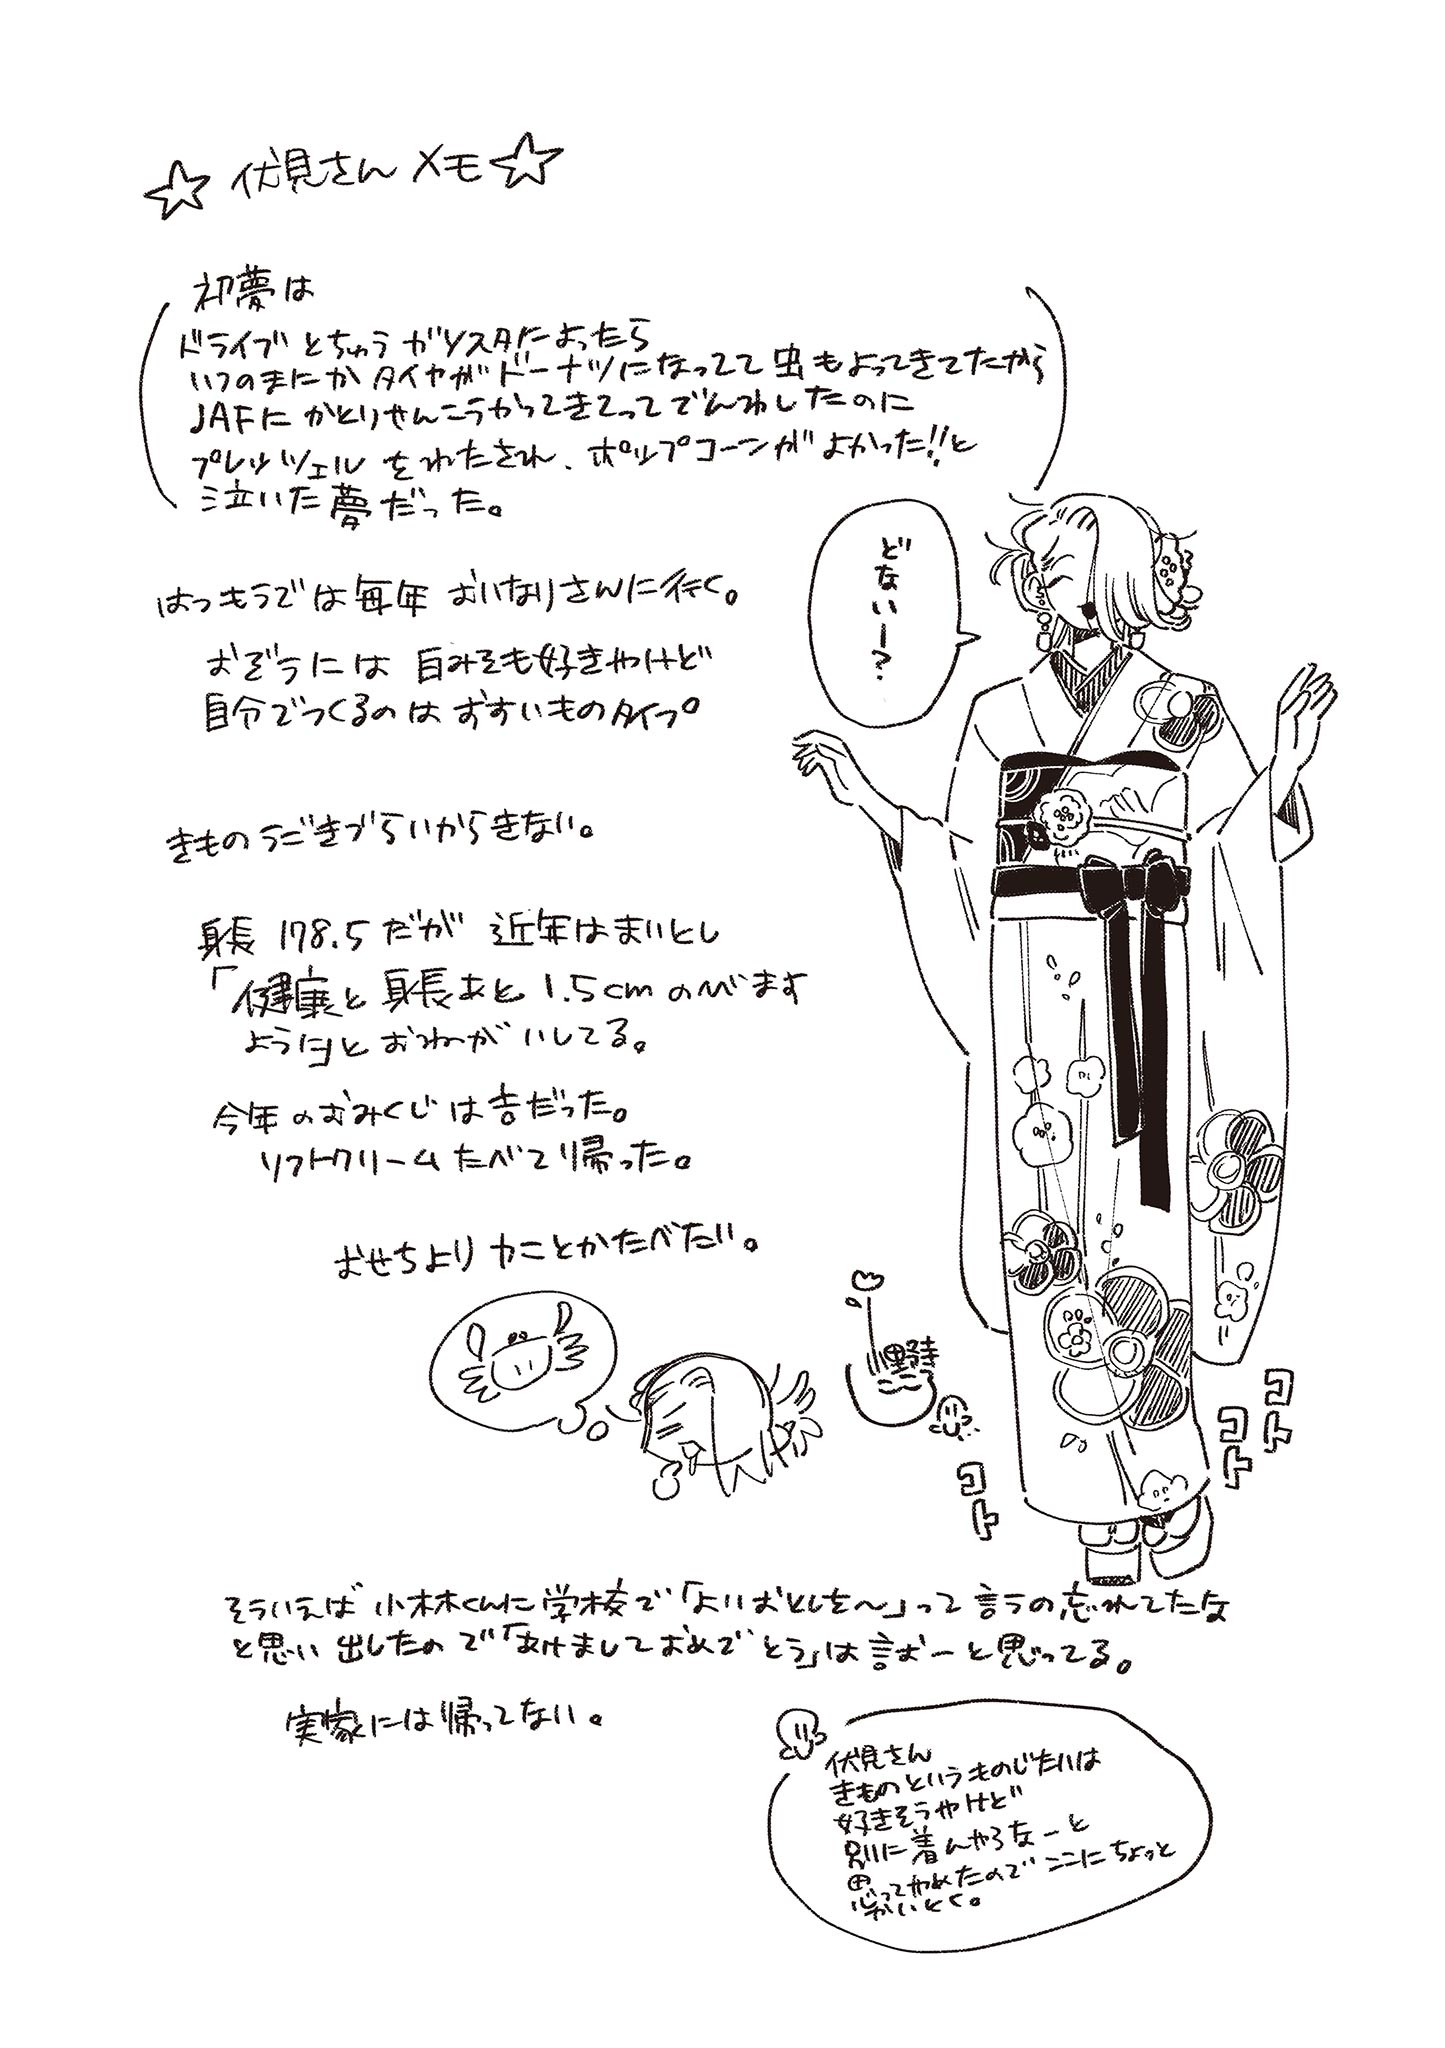 ☆伏見さんメモ☆
初夢は
ドライブとちゅうガソスタによったら
いつのまにかタイヤがドーナツになってて虫もよってきてたから
JAFにかとりせんこうかってきてってでんわしたのに
プレッツェルをわたされ、ポップコーンがよかった!!と
泣いた夢だった。
はつもうでは毎年おいなりさんに行く。
おぞうには白みそも好きやけど
自分でつくるのはおすいものタイプ
きものうごきづらいからきない。
身長178.5だが近年はまいとし
「健康と身長あと1.5cmのびます
ように」とおねがいしてる。
今年のおみくじは吉だった。
ソフトクリームたべて帰った。
おせちよりカニとかたべたい。
どないー?
コト
コト
コト
そういえば小林くんに学校で「よいおとしを〜」って言うの忘れてたな
と思い出したので「あけましておめでとう」は言おーと思ってる。
実家には帰ってない。
伏見さん
きものというものじたいは
好きそうやけど
別に着んやろなーと
思ってやめたのでここにちょっと
かいとく。